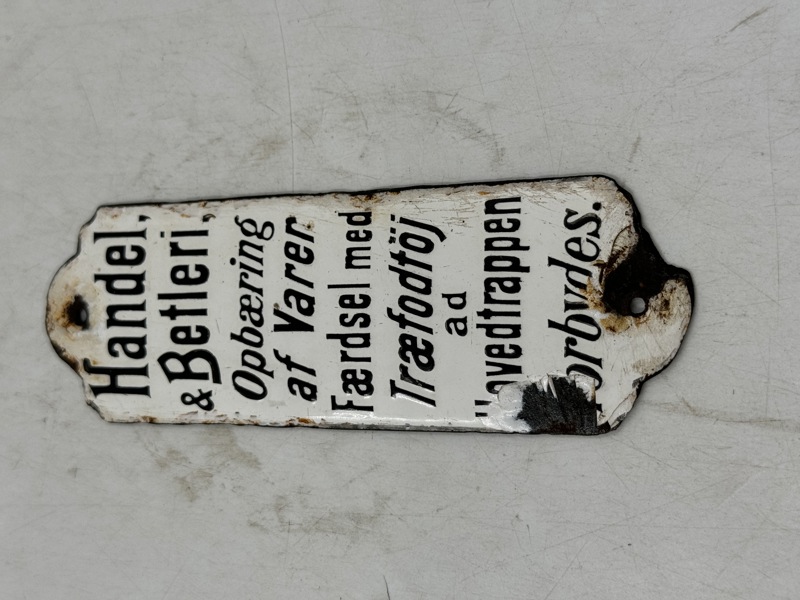 Handel,
& Betleri,
Opbæring
af Varer
Færdsel med
Træfodtöj
ad
Hovedtrappen
Forbydes.